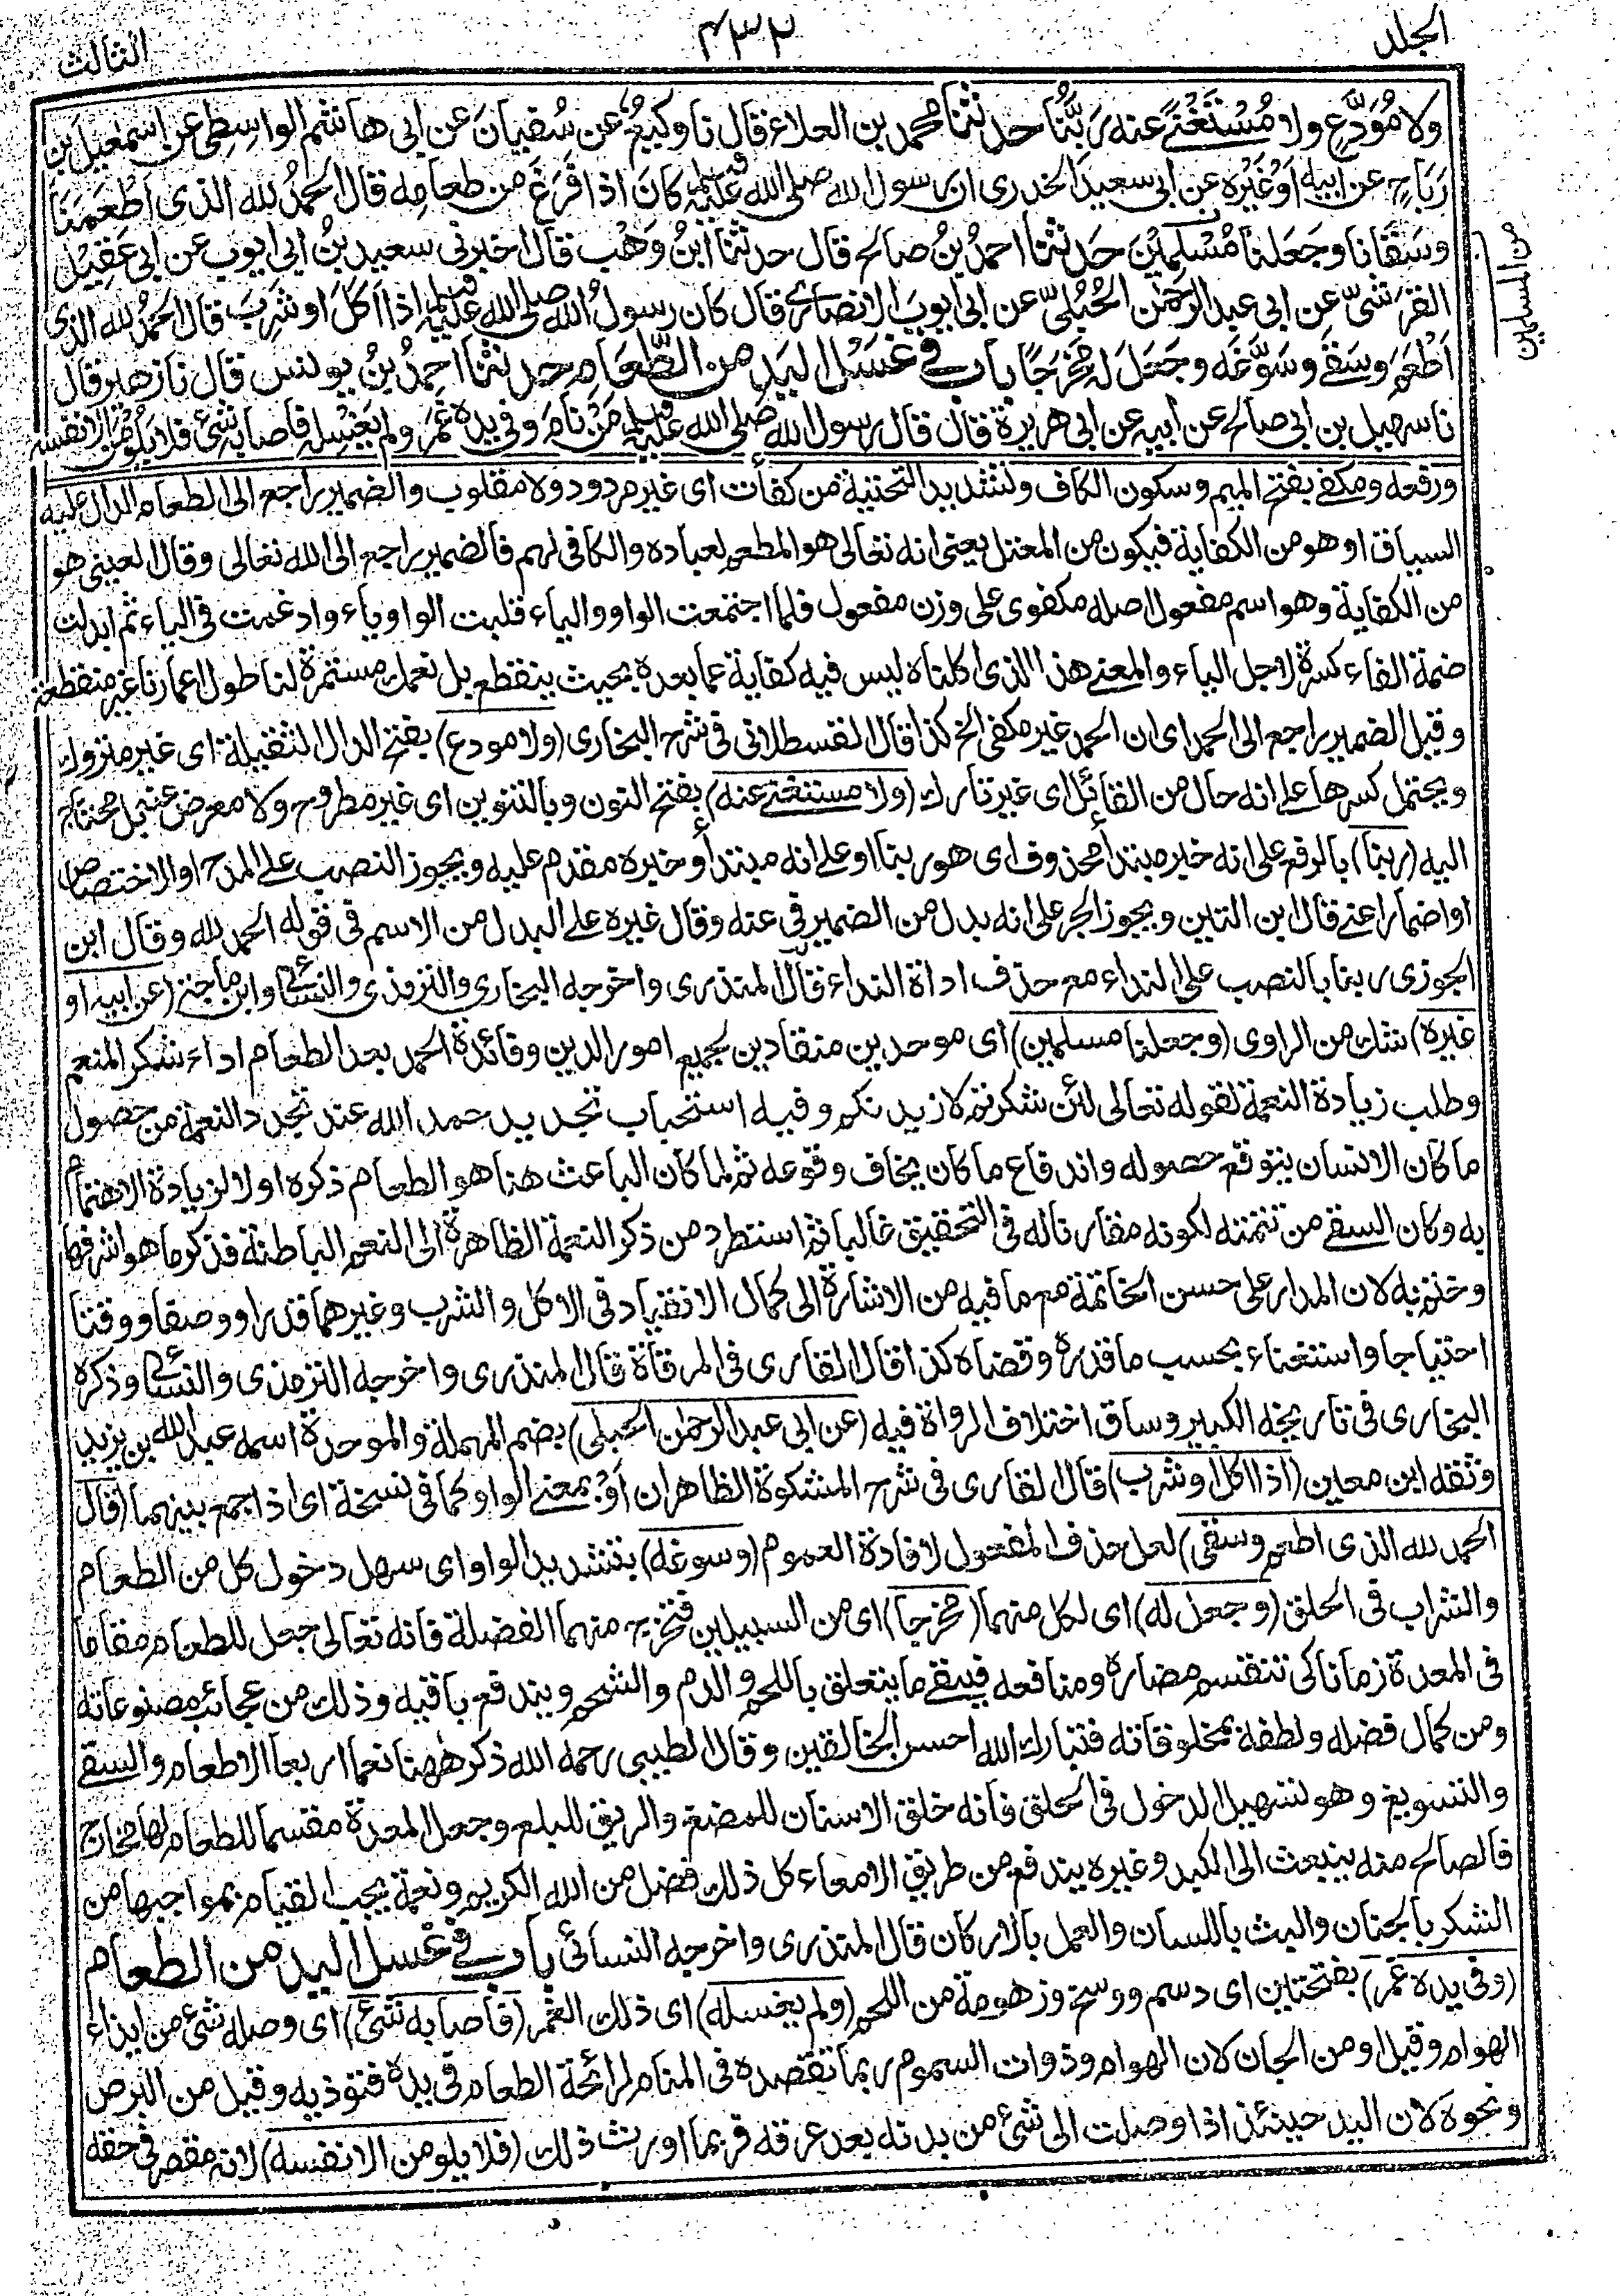 المجلد
٤٣٢
الثالث
ولا مُوَدَّعٍ ولا مُسْتَغْنًى عنه رَبُّنا حدثنا محمد بن العلاء قال نا وكيعٌ عن سُفيانَ عن ابى هاشم الواسِطِي عن اسمٰعيل بن
رَبَاحٍ عن ابيه اَوْ غَيْرِه عن ابى سعيد الخدرى ان رسول الله صلى الله عليه وسلم كانَ اذا فَرَغَ من طعامِه قال الحمدُ لله الذى اَطْعَمَنَا
وسَقَانا وجَعَلَنا مُسْلِمِيْنَ حَدثنا احمدُ بنُ صالح قال حدثنا ابنُ وَهْب قال اخبرنى سعيد بنُ ابى ايوب عن ابى عَقِيْلٍ
القُرَشىِّ عن ابى عبد الرحمٰن الحُبُلىِّ عن ابى ايوب الانصارى قال كان رسولُ الله صلى الله عليه وسلم اذا اَكَلَ او شَرِبَ قال الحمدُ لله الذى
اَطْعَمَ وسَقٰى وسَوَّغَه وجَعَلَ له مَخْرَجًا باب فى غَسْل اليَدِ من الطَّعَامِ حدثنا احمدُ بنُ يونس قال نا زهير قال
نا سهيل بن ابى صالح عن ابيه عن ابى هريرة قال قال رسول الله صلى الله عليه وسلم مَنْ نامَ وفى يدِه غَمَر ولم يَغْسِله فاصابه شئ فلا يَلُوْمَنَّ الا نفسه
من المسلمين
ورفعه ومكفى بفتح الميم وسكون الكاف وتشديد التحتية من كفأت اى غير مردود ولا مقلوب والضمير راجع الى الطعام الدال عليه
السياق او هو من الكفاية فيكون من المعتل يعنى انه تعالى هو المطعم لعباده والكافى لهم فالضمير راجع الى الله تعالى وقال العينى هو
من الكفاية وهو اسم مفعول اصله مكفوى على وزن مفعول فلما اجتمعت الواو والياء قلبت الواو ياء وادغمت فى الياء ثم ابدلت
ضمة الفاء كسرة لاجل الياء والمعنى هذا الذى اكلناه ليس فيه كفاية عما بعده بحيث ينقطع بل نعمك مستمرة لنا طول اعمارنا غير منقطعة
وقيل الضمير راجع الى الحمد اى ان الحمد غير مكفى الخ كذا قال القسطلانى فى شرح البخارى (ولا مودع) بفتح الدال الثقيلة اى غير متروك
ويحتمل كسرها على انه حال من القائل اى غير تارك (ولا مستغنى عنه) بفتح النون وبالتنوين اى غير مطروح ولا معرض عنه بل محتاج
اليه (ربنا) بالرفع على انه خبر مبتدأ محذوف اى هو ربنا او على انه مبتدأ وخبره مقدم عليه ويجوز النصب على المدح او الاختصاص
او اضمار اعنى قال ابن التين ويجوز الجر على انه بدل من الضمير فى عنه وقال غيره على البدل من الاسم فى قوله الحمد لله وقال ابن
الجوزى ربنا بالنصب على النداء مع حذف اداة النداء قال المنذرى واخرجه البخارى والترمذى والنسائى وابن ماجة (عن ابيه او
غيره) شك من الراوى (وجعلنا مسلمين) اى موحدين منقادين لجميع امور الدين وفائدة الحمد بعد الطعام اداء شكر المنعم
وطلب زيادة النعمة لقوله تعالى لئن شكرتم لازيدنكم وفيه استحباب تجديد حمد الله عند تجدد النعمة من حصول
ما كان الانسان يتوقع حصوله واندفاع ما كان يخاف وقوعه ثم لما كان الباعث هنا هو الطعام ذكره اولا لزيادة الاهتمام
به وكان السقى من تتمته لكونه مقارنا له فى التحقيق غالبا ثم استطرد من ذكر النعمة الظاهرة الى النعم الباطنة فذكر ما هو اشرفها
وختم به لان المدار على حسن الخاتمة مع ما فيه من الاشارة الى كمال الانقياد فى الاكل والشرب وغيرهما قدرا ووصفا ووقتا
احتياجا واستغناء بحسب ما قدره وقضاه كذا قال القارى فى المرقاة قال المنذرى واخرجه الترمذى والنسائى وذكره
البخارى فى تاريخه الكبير وساق اختلاف الرواة فيه (عن ابى عبد الرحمٰن الحبلى) بضم المهملة والموحدة اسمه عبد الله بن يزيد
وثقه ابن معين (اذا اكل او شرب) قال القارى فى شرح المشكوة الظاهر ان اَوْ بمعنى الواو كما فى نسخة اى اذا جمع بينهما (قال
الحمد لله الذى اطعم وسقى) لعل حذف المفعول لافادة العموم (وسوغه) بتشديد الواو اى سهل دخول كل من الطعام
والشراب فى الحلق (وجعل له) اى لكل منهما (مخرجا) اى من السبيلين فتخرج منهما الفضلة فانه تعالى جعل للطعام مقاما
فى المعدة زمانا كى تنقسم مضاره ومنافعه فيبقى ما يتعلق باللحم والدم والشحم ويندفع باقيه وذلك من عجائب مصنوعاته
ومن كمال فضله ولطفه بمخلوقاته فتبارك الله احسن الخالقين وقال الطيبى رحمه الله ذكر ههنا نعما اربعا الاطعام والسقى
والتسويغ وهو تسهيل الدخول فى الحلق فانه خلق الاسنان للمضغ والريق للبلع وجعل المعدة مقسما للطعام لها مخارج
فالصالح منه ينبعث الى الكبد وغيره يندفع من طريق الامعاء كل ذلك فضل من الله الكريم ونعمة يجب القيام بمواجبها من
الشكر بالجنان والبث باللسان والعمل بالاركان قال المنذرى واخرجه النسائى باب فى غسل اليد من الطعام
(وفى يده غمر) بفتحتين اى دسم ووسخ وزهومة من اللحم (ولم يغسله) اى ذلك الغمر (فاصابه شئ) اى وصله شئ من ايذاء
الهوام وقيل او من الجان لان الهوام وذوات السموم ربما تقصده فى المنام لرائحة الطعام فى يده فتوذيه وقيل من البرص
ونحوه لان اليد حينئذ اذا وصلت الى شئ من بدنه بعد عرقه فربما اورث ذلك (فلا يلومن الا نفسه) لانه مقصر فى حقه